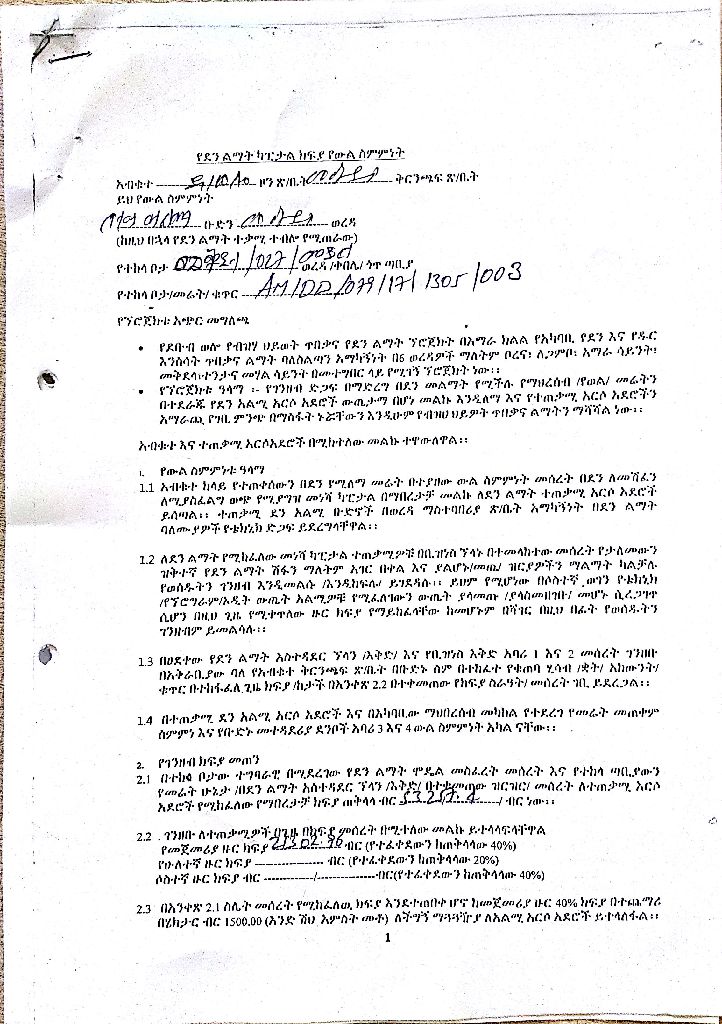 የደን ልማት ካፒታል ክፍያ የውል ስምምነት
አብቁተ ዞን ጽ/ቤት ቅርንጫፍ ጽ/ቤት
ይህ የውል ስምምነት
ቡድን ወረዳ
(ከዚህ በኋላ የደን ልማት ተቃሚ ተብሎ የሚጠራው)
የተከላ ቦታ /027/ ወረዳ /ቀበሌ/ ጎጥ ጣቢያ
የተከላ ቦታ/መሬት/ ቁጥር AM/DD/079/17/1305/003
የፕሮጀክቱ አጭር መግለጫ
• የደቡብ ወሎ የብዝሃ ህይወት ጥበቃና የደን ልማት ፕሮጀክት በአማራ ክልል የአካባቢ የደን እና የዱር
እንስሳት ጥበቃና ልማት ባለስልጣን አማካኝነት በ6 ወረዳዎች ማለትም ቦረና፣ ሌጋምቦ፣ አማራ ሳይንት፣
መቅደላ፣ተንታና መሃል ሳይንት በመተግበር ላይ የሚገኝ ፕሮጀክት ነው፡፡
• የፕሮጀክቱ ዓላማ ፡- የገንዘብ ድጋፍ በማድረግ በደን መልማት የሚችሉ የማህበረሰብ /የወል/ መሬትን
በተደራጁ የደን አልሚ አርሶ አደሮች ውጤታማ በሆነ መልኩ እንዲለማ እና የተጠቃሚ አርሶ አደሮችን
አማራጪ የገቢ ምንጭ በማስፋት ኑሯቸውን እንዲሁም የብዝሀ ህይዎት ጥበቃና ልማትን ማሻሻል ነው፡፡
አብቁተ እና ተጠቃሚ አርሶአደሮች በሚከተለው መልኩ ተዋውለዋል፡፡
1. የውል ስምምነቱ ዓላማ
1.1 አብቁተ ከላይ የተጠቀሰውን በደን የሚለማ መሬት በተያዘው ውል ስምምነት መሰረት በደን ለመሸፈን
ለሚያስፈልግ ወጭ የሚያግዝ መነሻ ካፒታል በማበረታቻ መልኩ ለደን ልማት ተጠቃሚ አርሶ አደሮች
ይሰጣል፡፡ ተጠቃሚ ደን አልሚ ቡድኖች በወረዳ ማስተባበሪያ ጽ/ቤት አማካኝነት በደን ልማት
ባለሙያዎች የቴክኒክ ድጋፍ ይደረግላቸዋል፡፡
1.2 ለደን ልማት የሚከፈለው መነሻ ካፒታል ተጠቃሚዎቹ በቢዝነስ ፕላኑ በተመላከተው መሰረት የታለመውን
ዝቅተኛ የደን ልማት ሽፋን ማለትም አገር በቀል እና ያልሆኑ/መጤ/ ዝርያዎችን ማልማት ካልቻሉ
የወሰዱትን ገንዘብ እንዲመልሱ /እንዲከፍሉ/ ይገደዳሉ፡፡ ይህም የሚሆነው በሶስተኛ ወገን የቴክኒክ
/የፕሮግራም/ኦዲት ውጤት አልሚዎቹ የሚፈለገውን ውጤት ያላመጡ /ያላስመዘገቡ/ መሆኑ ሲረጋገጥ
ሲሆን በዚህ ጊዜ የሚቀጥለው ዙር ክፍያ የማይከፈላቸው ከመሆኑም በሻገር በዚህ በፊት የወሰዱትን
ገንዘብም ይመልሳሉ፡፡
1.3 በፀደቀው የደን ልማት አስተዳደር ፕላን /እቅድ/ እና የቢዝነስ እቅድ አባሪ 1 እና 2 መሰረት ገንዘቡ
በአቅራቢያው ባለ የአብቁተ ቅርንጫፍ ጽ/ቤት በቡድኑ ስም በተከፈተ የቁጠባ ሂሳብ /ቋት/ አካውንት/
ቁጥር በተከፋፈለ ጊዜ ክፍያ /ከታች በአንቀጽ 2.2 በተቀመጠው የክፍያ ስራዓት/ መሰረት ገቢ ይደረጋል፡፡
1.4 በተጠቃሚ ደን አልሚ አርሶ አደሮች እና በአካባቢው ማህበረሰብ መካከል የተደረገ የመሬት መጠቀም
ስምምነ እና የቡድኑ መተዳደሪያ ደንቦች አባሪ 3 እና 4 ውል ስምምነት አካል ናቸው፡፡
2. የገንዘብ ክፍያ መጠን
2.1 በተከላ ቦታው ተግባራዊ በሚደረገው የደን ልማት ሞዴል መስፈረት መሰረት እና የተከላ ጣቢያውን
የመሬት ሁኔታ /በደን ልማት አስተዳደር ፕላን /እቅድ/ በተቀመጠው ዝርዝር/ መሰረት ለተጠቃሚ አርሶ
አደሮች የሚከፈለው የማበረታቻ ክፍያ ጠቅላላ ብር 53257.4/ ብር ነው፡፡
2.2 ገንዘቡ ለተጠቃሚዎች በጊዜ በክፍያ ምሰረት በሚተለው መልኩ ይተላለፍላቸዋል
የመጀመሪያ ዙር ክፍያ 21302.96 ብር (የተፈቀደውን ከጠቅላላው 40%)
የሁለተኛ ዙር ክፍያ ------------------ ብር (የተፈቀደውን ከጠቅላላው 20%)
ሶስተኛ ዙር ክፍያ ብር -------------/---------------ብር(የተፈቀደውን ከጠቅላላው 40%)
2.3 በአንቀጽ 2.1 ስሌት መሰረት የሚከፈለዉ ክፍያ እንደተጠበቀ ሆኖ ከመጀመሪያ ዙር 40% ክፍያ በተጨማሪ
በሄክታር ብር 1500.00 (አንድ ሽህ አምስት መቶ) ለችግኝ ማጓጓዥያ ለአልሚ አርሶ አደሮች ይተላለፋል፡፡
1